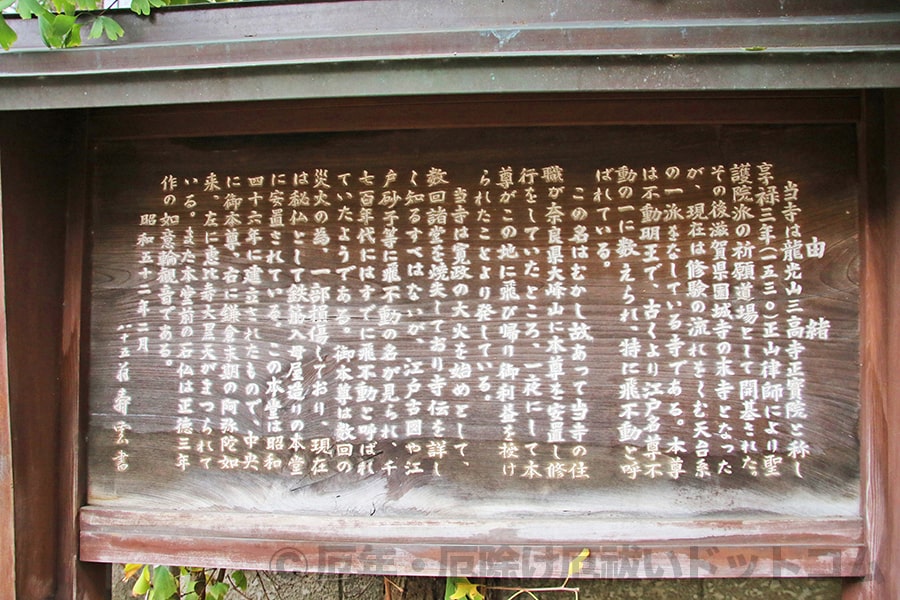 由緒
当寺は龍光山三高寺正寶院と称し
享禄三年(一五三〇)正山律師により聖
護院派の祈願道場として開基された。
その後滋賀県園城寺の末寺となった
が、現在は修験の流れをくむ天台系
の一派をなしている寺である。本尊
は不動明王で、古くより江戸名尊不
動の一に数えられ、特に飛不動と呼
ばれている。
この名はむかし故あって当寺の住
職が奈良県大峰山に本尊を安置し修
行をしていたところ、一夜にして本
尊がこの地に飛び帰り御利益を授け
られたことより発している。
当寺は寛政の大火を始めとして、
数回諸堂を焼失しており寺伝を詳し
く知るすべはないが、江戸古図や江
戸砂子等に飛不動の名が見られ、千
七百年代にはすでに飛不動と呼ばれ
ていたようである。御本尊は数回の
災火の為、一部損傷しており、現在
は秘仏として鉄筋入母屋造りの本堂
に安置されている。この本堂は昭和
四十六年に建立されたもので、中央
に御本尊、右に鎌倉末期の阿弥陀如
来、左に恵比寿大黒天がまつられて
いる。また本堂前の石仏は正徳三年
作の如意輪観音である。
昭和五十二年二月
八十五荘寿雲書
© 厄年・厄除け厄祓いドットコム